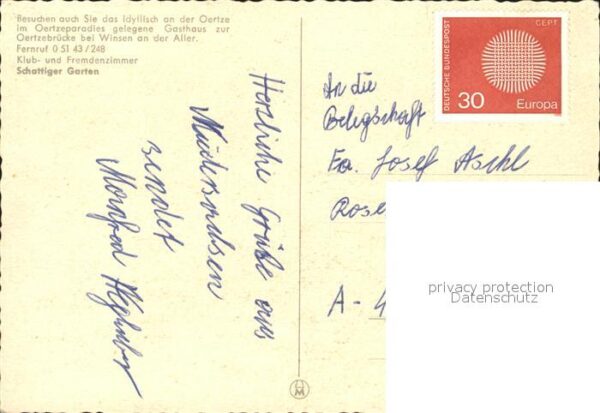 Besuchen auch Sie das idyllisch an der Oertze
im Oertzeparadies gelegene Gasthaus zur
Oertzebrücke bei Winsen an der Aller.
Fernruf 0 51 43 / 248
Klub- und Fremdenzimmer
Schattiger Garten
Herzliche Grüße aus
Niedersachsen
sendet
Manfred
DEUTSCHE BUNDESPOST
CEPT
30 Europa
An die
Belegschaft
Fa. Josef Aschl
Rose
A - 4
privacy protection
Datenschutz
HM